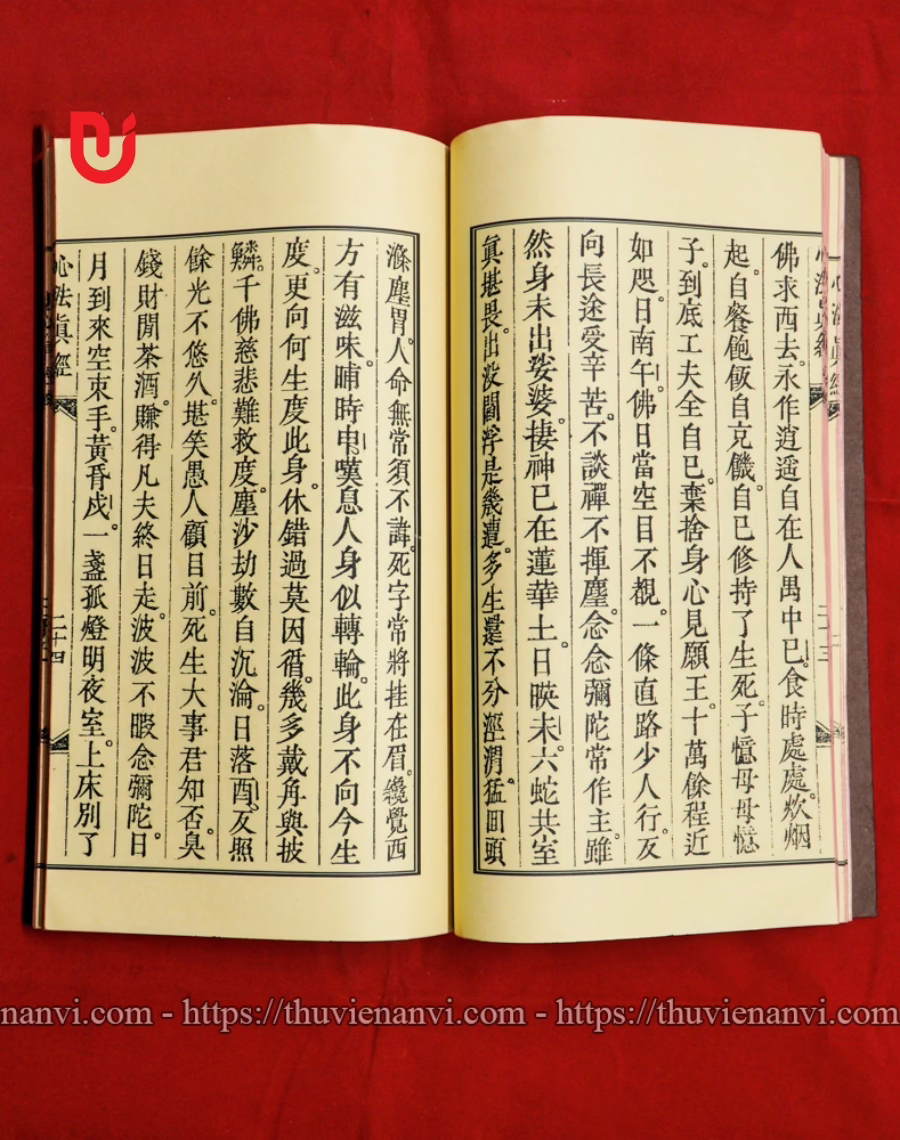 佛求西去。永作逍遥自在人禺中巳。食時處處炊烟
起。自餐飽飯自充饑。自已修持了生死。子憶母母憶
子。到底工夫全自已。棄捨身心見願王。十萬餘程近
如咫。日南午。佛日當空目不觀。一條直路少人行。反
向長途受辛苦。不談禪不揮塵。念念彌陀常作主。雖
然身未出娑婆。捿神已在蓮華土。日昳未。六蛇共室
真堪畏。出沒閻浮是幾遭。多生還不分涇渭。猛回頭
滌塵胃。人命無常須不諱。死字常將挂在眉。纔覺西
方有滋味。晡時申。嘆息人身似轉輪。此身不向今生
度。更向何生度此身。休錯過莫因循。幾多戴角與披
鱗。千佛慈悲難救度。塵沙劫數自沉淪。日落酉。反照
餘光不悠久。堪笑愚人顧目前。死生大事君知否。臭
錢財閒茶酒。賺得凡夫終日走。波波不暇念彌陀。日
月到來空束手。黃昏戌。一盞孤燈明夜室。上床別了
心法真經
二十四
https://thuvienanvi.com - https://thuvienanvi.com